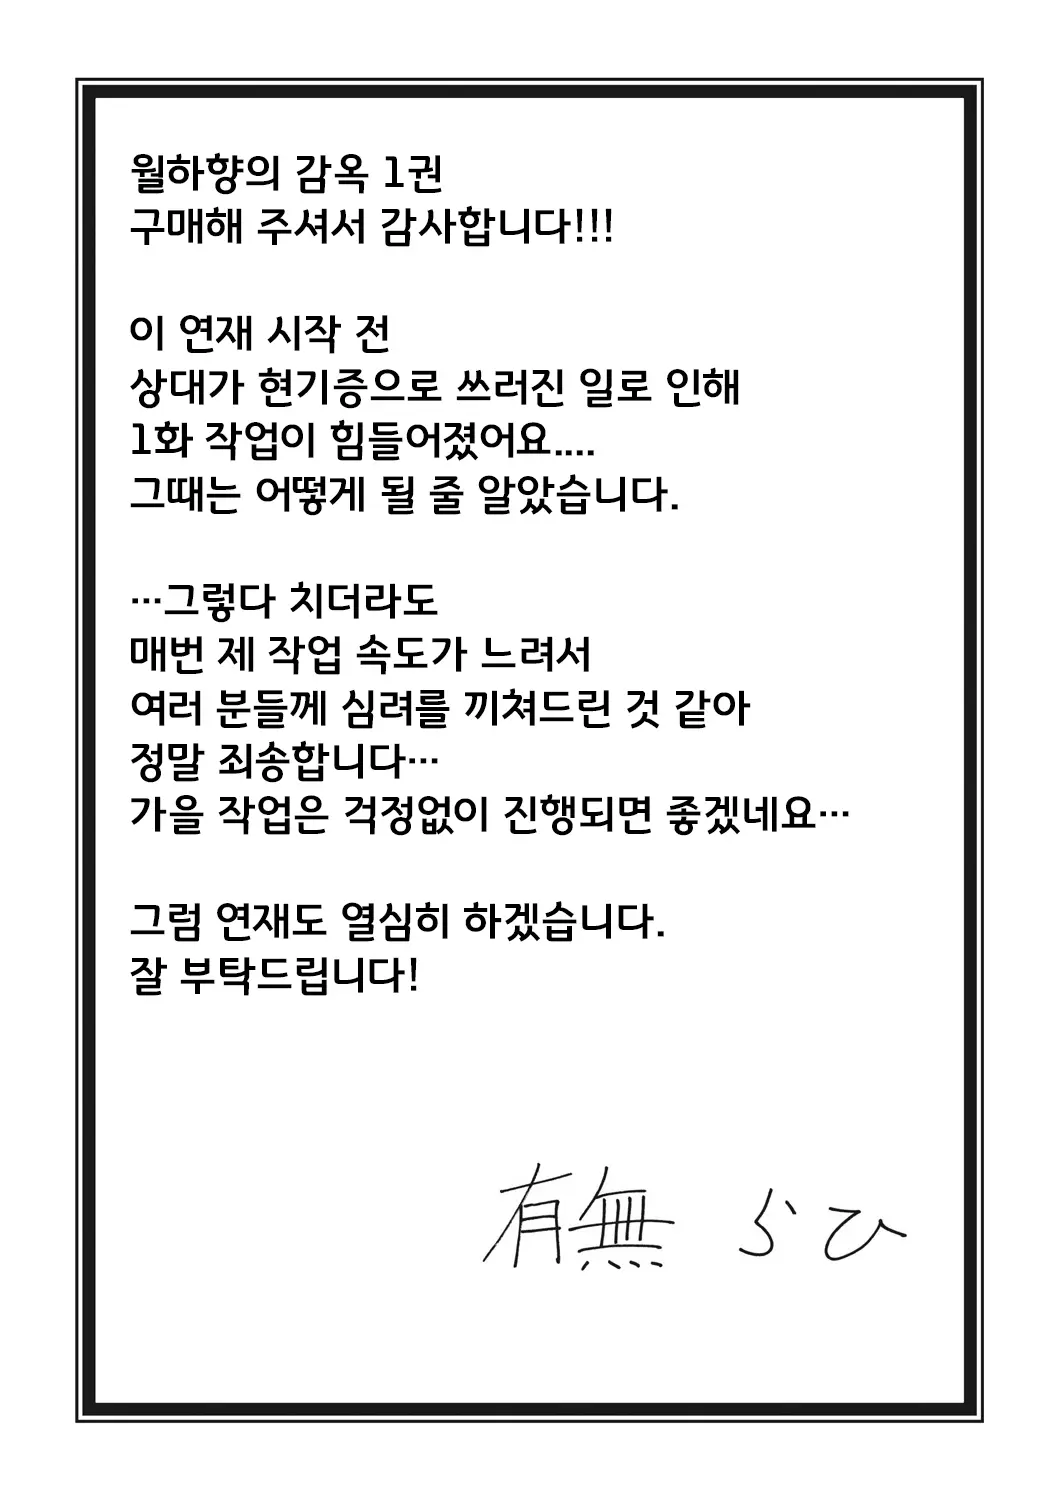 월하향의 감옥 1권
구매해 주셔서 감사합니다!!!
이 연재 시작 전
상대가 현기증으로 쓰러진 일로 인해
1화 작업이 힘들어졌어요....
그때는 어떻게 될 줄 알았습니다.
…그렇다 치더라도
매번 제 작업 속도가 느려서
여러 분들께 심려를 끼쳐드린 것 같아
정말 죄송합니다…
가을 작업은 걱정없이 진행되면 좋겠네요…
그럼 연재도 열심히 하겠습니다.
잘 부탁드립니다!
有無 らひ